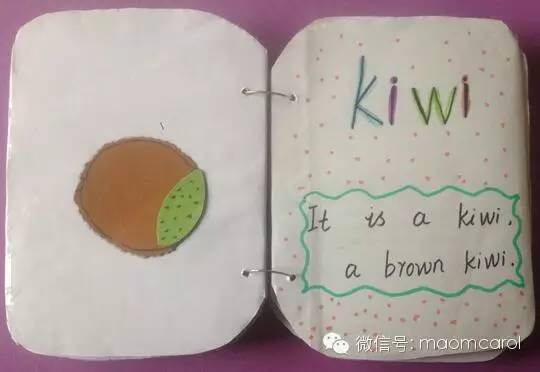 kiwi
It is a kiwi.
a brown kiwi.
微信号: maomcarol